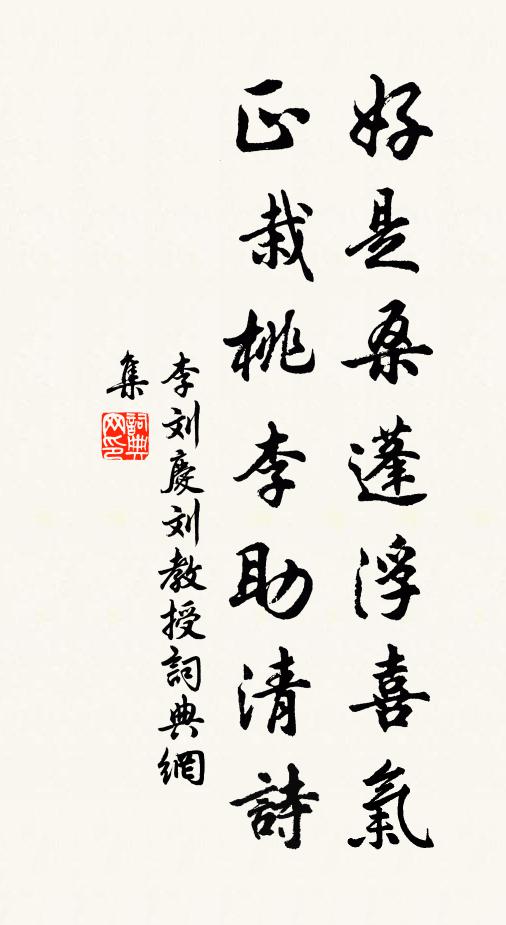 好是桑蓬浮喜氣
正栽桃李助清詩
李刘慶刘教授詞典網
集
詞典
网印